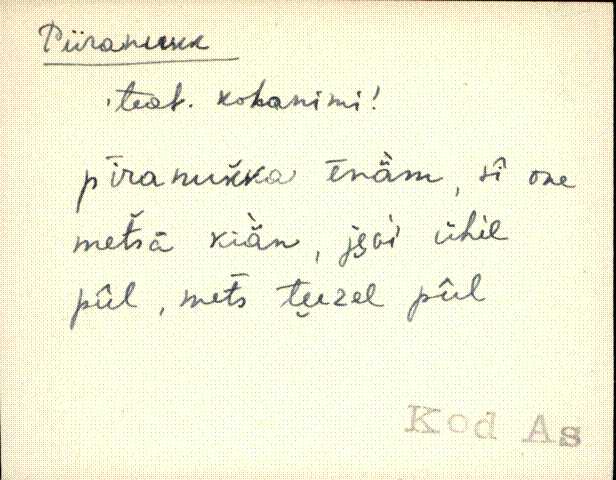 Piiranukk
teat. kohanimi!
pīranuk̆ka ēnäm, sî one
met̆sā kiän, jȩ̄gi ühel
pûl, mets tȩezel pûl
Kod As